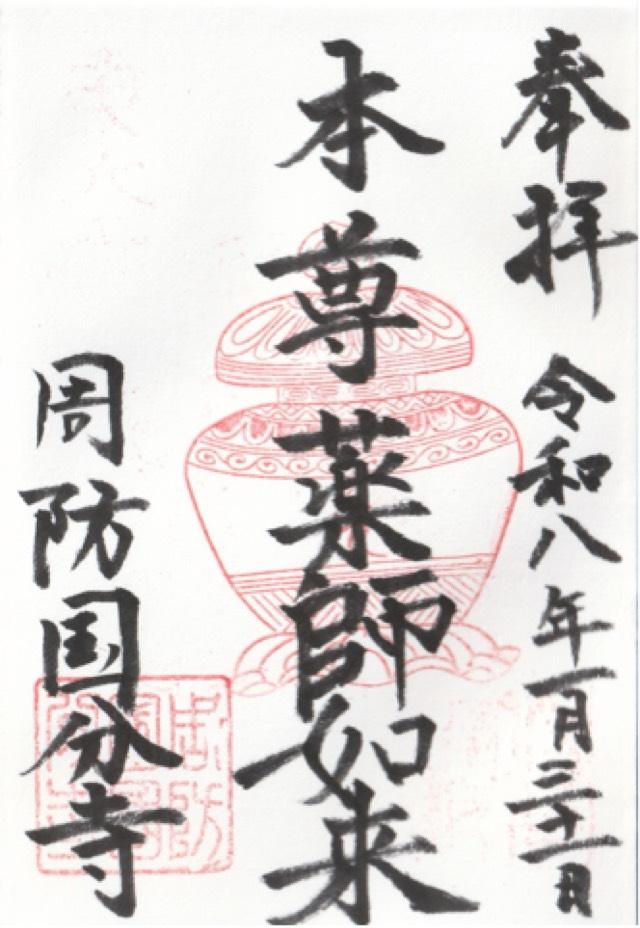 奉拝 令和八年一月三十一日
本尊薬師如来
周防国分寺